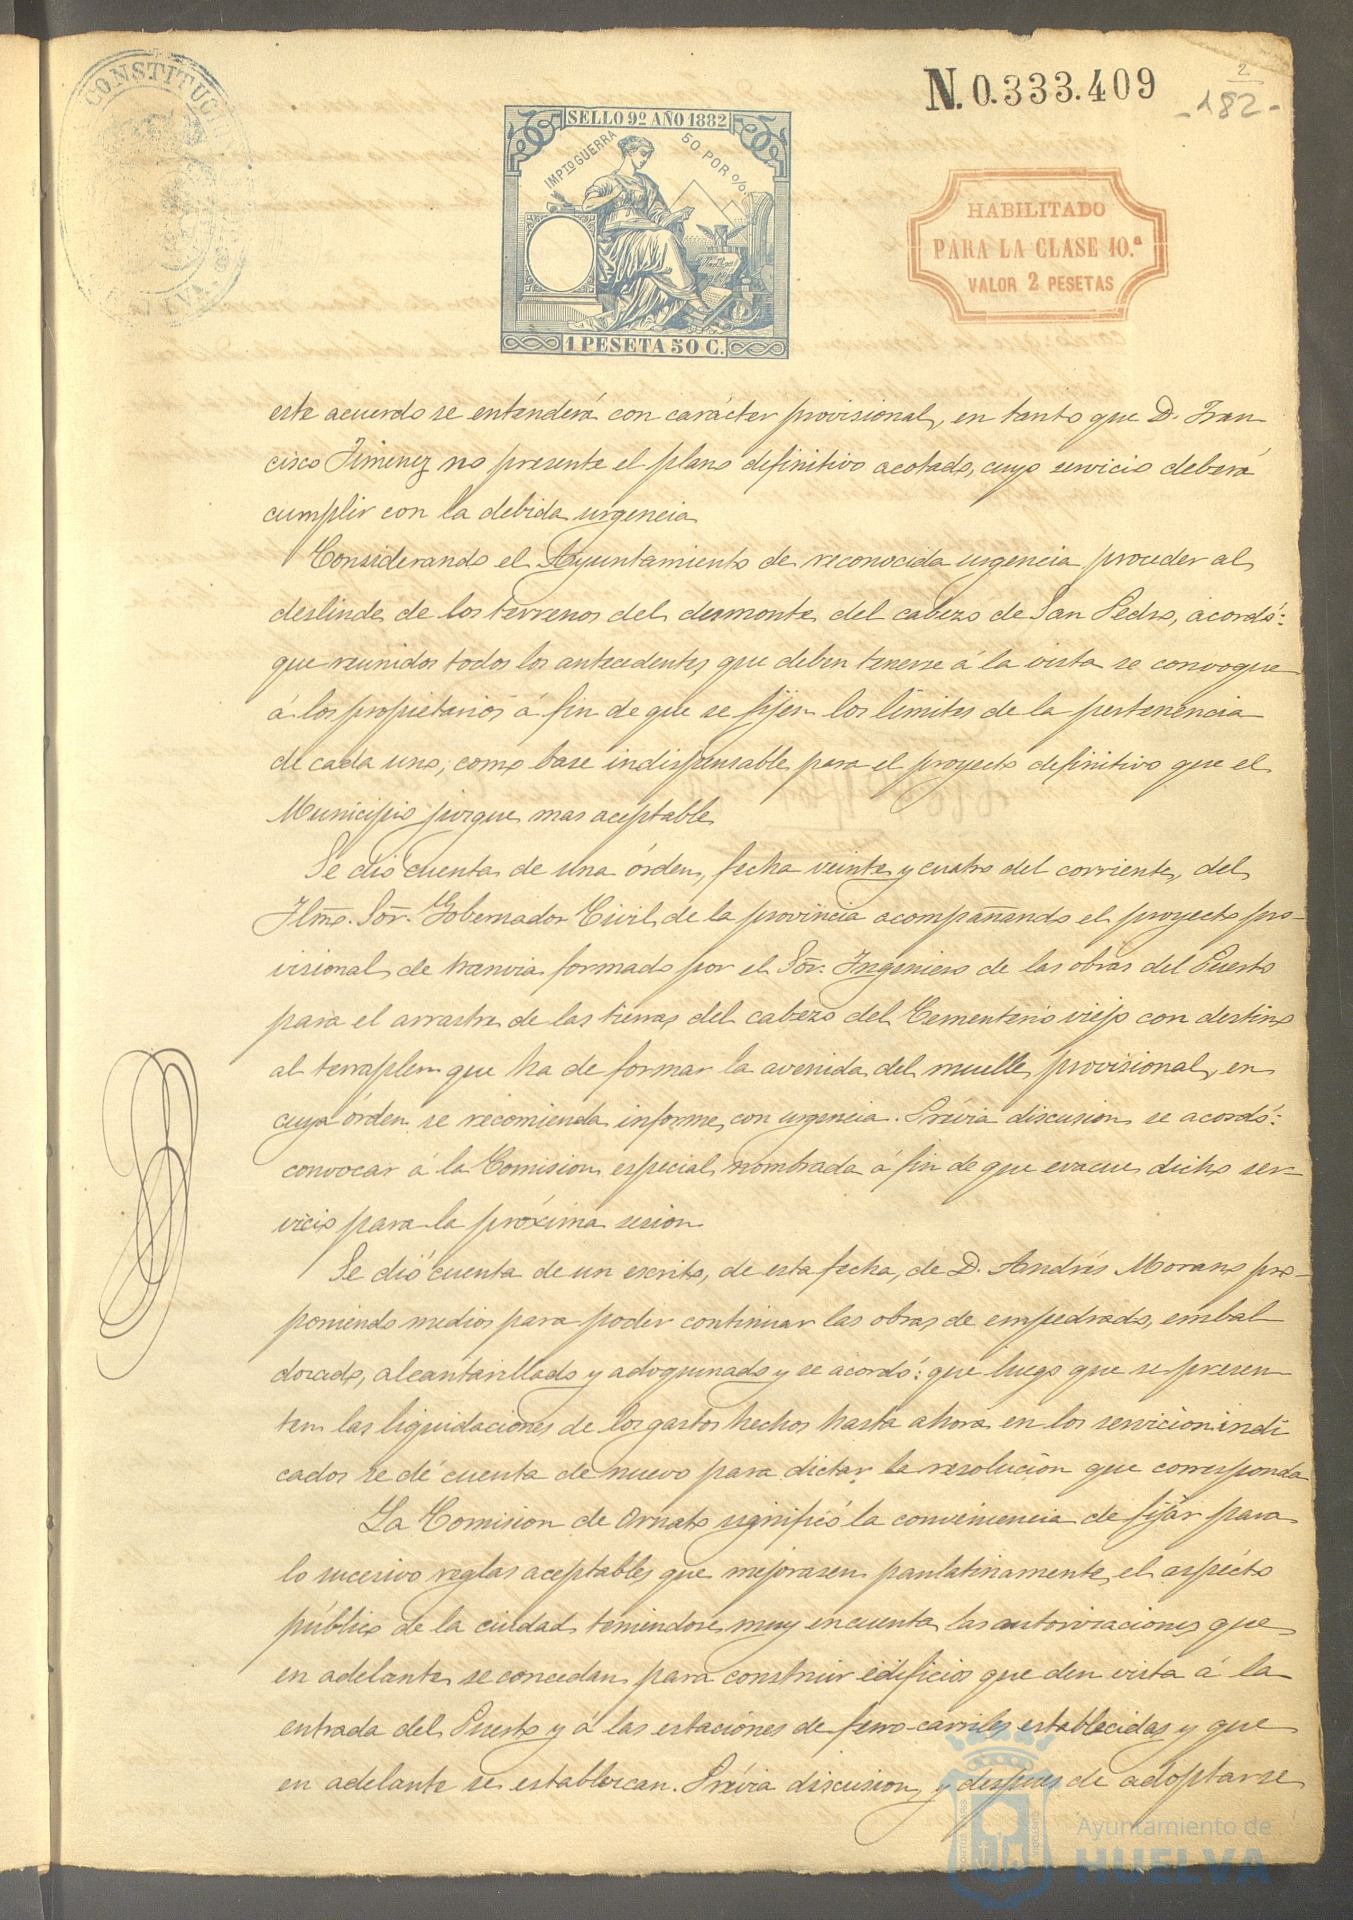 CONSTITUCIONAL
HUELVA.
N. 0.333.409
2
-182-
SELLO 9º AÑO 1882
IMPTO GUERRA 50 POR %.
1 PESETA 50 C.
HABILITADO
PARA LA CLASE 10.ª
VALOR 2 PESETAS
este acuerdo se entenderá con carácter provisional, en tanto que D. Fran
cisco Jimenez no presente el plano definitivo acotado, cuyo servicio deberá
cumplir con la debida urgencia
Considerando el Ayuntamiento de reconocida urgencia proceder al
deslinde de los terrenos del desmonte del cabezo de San Pedro, acordó:
que reunidos todos los antecedentes que deben tenerse á la vista se convoque
á los propietarios á fin de que se fijen los límites de la pertenencia
de cada uno, como base indispensable para el proyecto definitivo que el
Municipio juzgue mas aceptable
Se dió cuenta de una órden, fecha veinte y cuatro del corriente, del
Iltmo. Sor. Gobernador Civil de la provincia acompañando el proyecto pro-
visional de tranvia formado por el Sor. Ingeniero de las obras del Puerto
para el arrastre de las tierras del cabezo del Cementerio viejo con destino
al terraplen que ha de formar la avenida del muelle provisional, en
cuya órden se recomienda informe con urgencia. Prévia discusion se acordó:
convocar á la Comision especial nombrada á fin de que evacue dicho ser-
vicio para la próxima sesion
Se dió cuenta de un escrito, de esta fecha, de D. Andrés Morano pro-
poniendo medios para poder continuar las obras de empedrado, embal
dosado, alcantarillado y adoquinado y se acordó: que luego que se presen
ten las liquidaciones de los gastos hechos hasta ahora en los servicios indi
cados se dé cuenta de nuevo para dictar la resolucion que corresponda
La Comision de Ornato significó la conveniencia de fijar para
lo sucesivo reglas aceptables que mejorasen paulatinamente el aspécto
público de la ciudad teniendose muy encuenta las autorizaciones que
en adelante se concedan para construir edificios que den vista á la
entrada del Puerto y á las estaciones de ferro-carriles establecidas y que
en adelante se establezcan. Prévia discusion, y despues de adoptarse
Ayuntamiento de
HUELVA